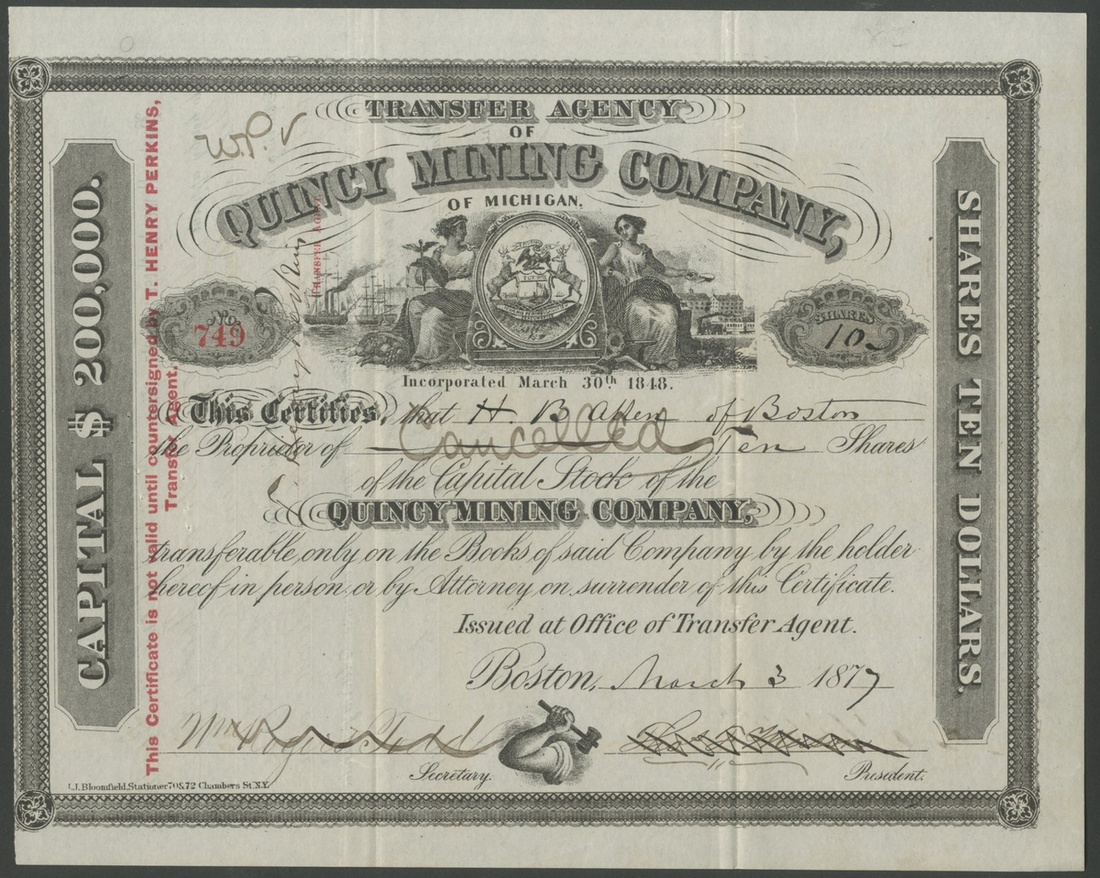 W.P.
TRANSFER AGENCY
OF
QUINCY MINING COMPANY,
OF MICHIGAN.
No
749
SHARES
10
Incorporated March 30th 1848.
This Certifies, that H. B. Allen of Boston
the Proprietor of Ten Shares
Cancelled
of the Capital Stock of the
QUINCY MINING COMPANY,
transferable only on the Books of said Company by the holder
hereof in person or by Attorney on surrender of this Certificate.
Issued at Office of Transfer Agent.
Boston, March 3 1877
Wm Rogers Todd
Secretary.
President.
L.J. Bloomfield, Stationer 70 & 72 Chambers St. N.Y.
CAPITAL $ 200,000.
This Certificate is not valid until countersigned by T. HENRY PERKINS,
Transfer Agent.
TRANSFER AGENT
SHARES TEN DOLLARS.